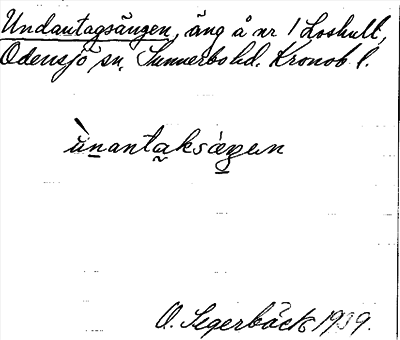 Undantagsängen, äng å nr 1 Loshult,
Odensjö sn. Sunnerbo hd. Kronob l.
ùnantaksäŋen
O. Segerbäck 1939.